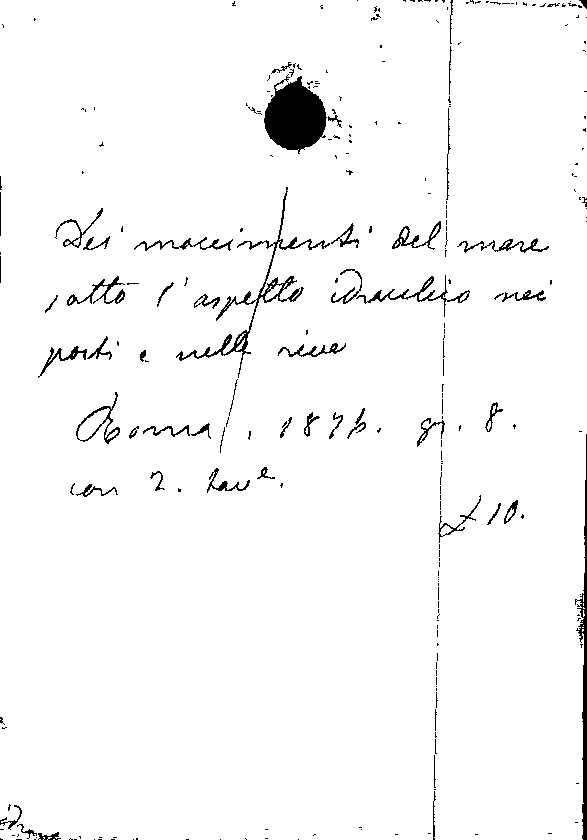 Dei movimenti del mare
sotto l'aspetto idraulico nei
porti e nelle rive
Roma, 1876. gr. 8.
con 2. tave.
£ 10.